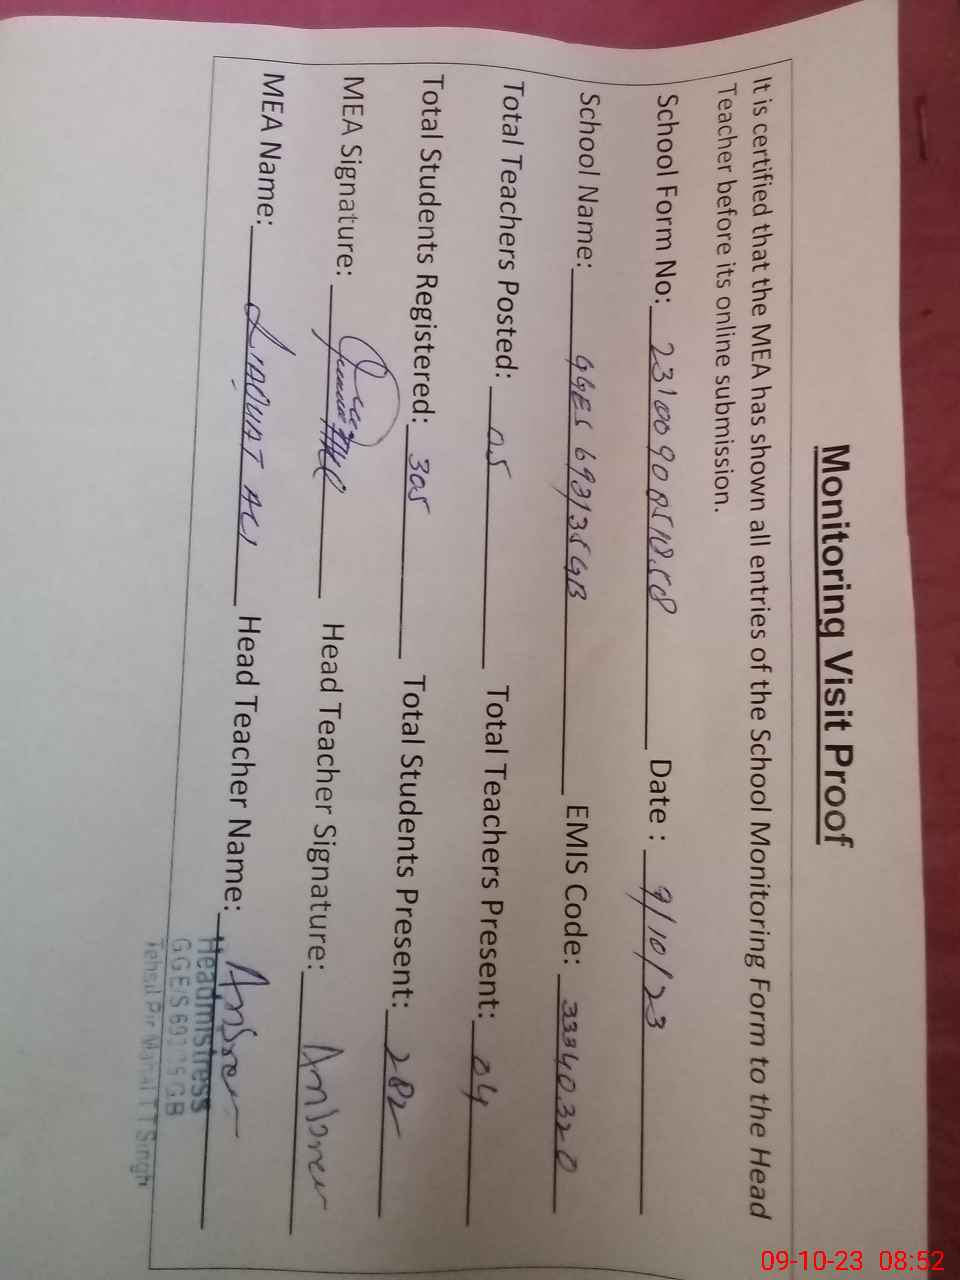 Monitoring Visit Proof
It is certified that the MEA has shown all entries of the School Monitoring Form to the Head
Teacher before its online submission.
School Form No: Date : 9/10/23
School Name: GGES 693/35GB EMIS Code: 33340320
Total Teachers Posted: 05 Total Teachers Present: 04
Total Students Registered: 305 Total Students Present: 282
MEA Signature: Head Teacher Signature:
MEA Name: LIAQUAT ALI Head Teacher Name:
Headmistress
GGE/S 693/35 GB
Tehsil Pir Mahal T T Singh
09-10-23 08:52